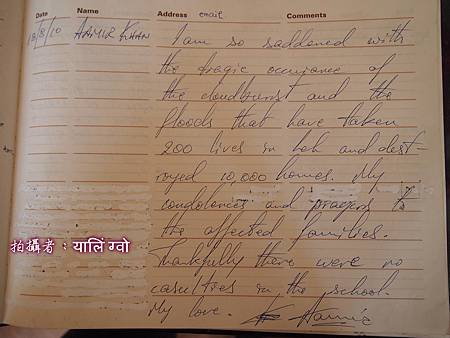 Date Name Address email Comments
18/8/10 AAMIR KHAN I am so saddened with
the tragic occurance of
the cloudburst and the
floods that have taken
200 lives in Leh and dest-
royed 10,000 homes. My
condolences and prayers to
the affected families.
Thankfully there were no
casulties in the school.
My love. Aamir
拍攝者：यालिं ग्वो